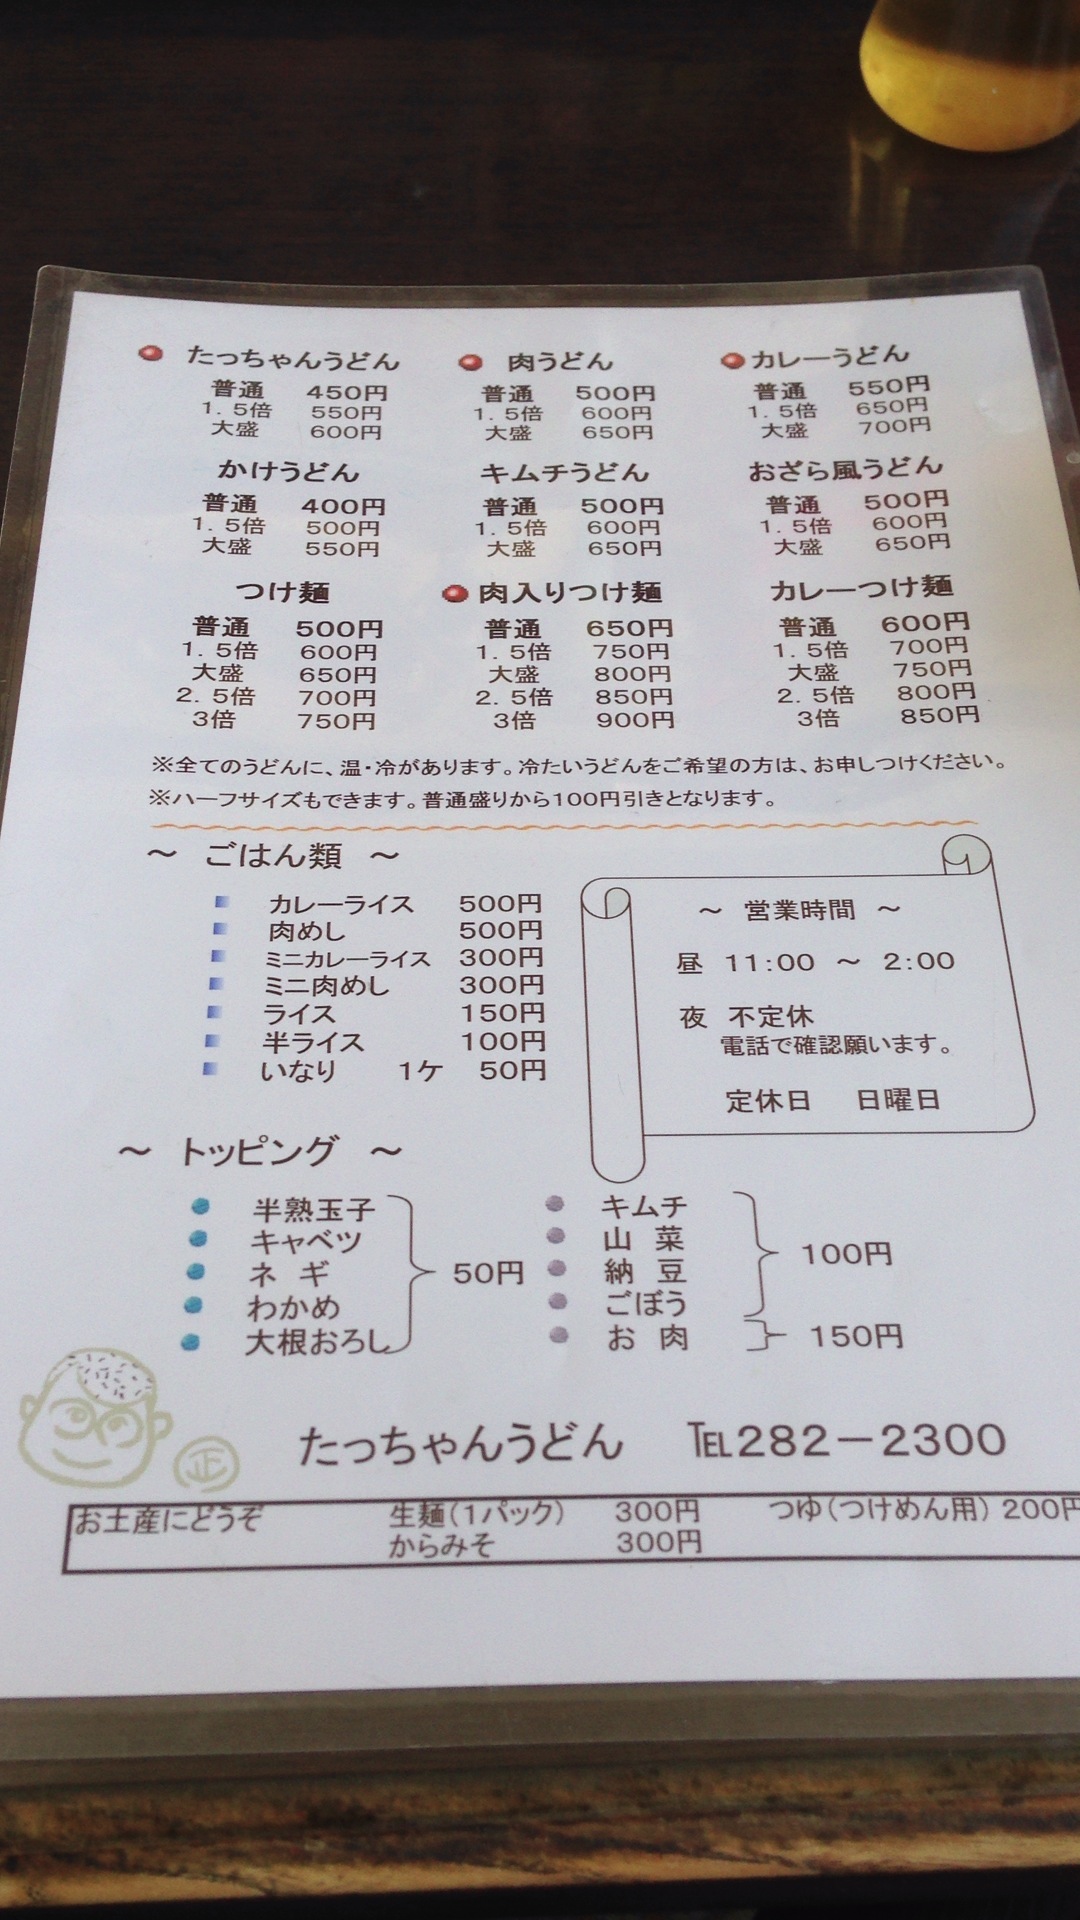 たっちゃんうどん 肉うどん カレーうどん
普通 450円 普通 500円 普通 550円
1.5倍 550円 1.5倍 600円 1.5倍 650円
大盛 600円 大盛 650円 大盛 700円
かけうどん キムチうどん おざら風うどん
普通 400円 普通 500円 普通 500円
1.5倍 500円 1.5倍 600円 1.5倍 600円
大盛 550円 大盛 650円 大盛 650円
つけ麺 肉入りつけ麺 カレーつけ麺
普通 500円 普通 650円 普通 600円
1.5倍 600円 1.5倍 750円 1.5倍 700円
大盛 650円 大盛 800円 大盛 750円
2.5倍 700円 2.5倍 850円 2.5倍 800円
3倍 750円 3倍 900円 3倍 850円
※全てのうどんに、温・冷があります。冷たいうどんをご希望の方は、お申しつけください。
※ハーフサイズもできます。普通盛りから100円引きとなります。
～ ごはん類 ～
カレーライス 500円
肉めし 500円
ミニカレーライス 300円
ミニ肉めし 300円
ライス 150円
半ライス 100円
いなり 1ケ 50円
～ 営業時間 ～
昼 11:00 ～ 2:00
夜 不定休
電話で確認願います。
定休日 日曜日
～ トッピング ～
半熟玉子
キャベツ
ネギ
わかめ
大根おろし
50円
キムチ
山菜
納豆
ごぼう
100円
お肉 150円
正
たっちゃんうどん ℡282－2300
お土産にどうぞ 生麺(1パック) 300円 つゆ(つけめん用) 200円
からみそ 300円